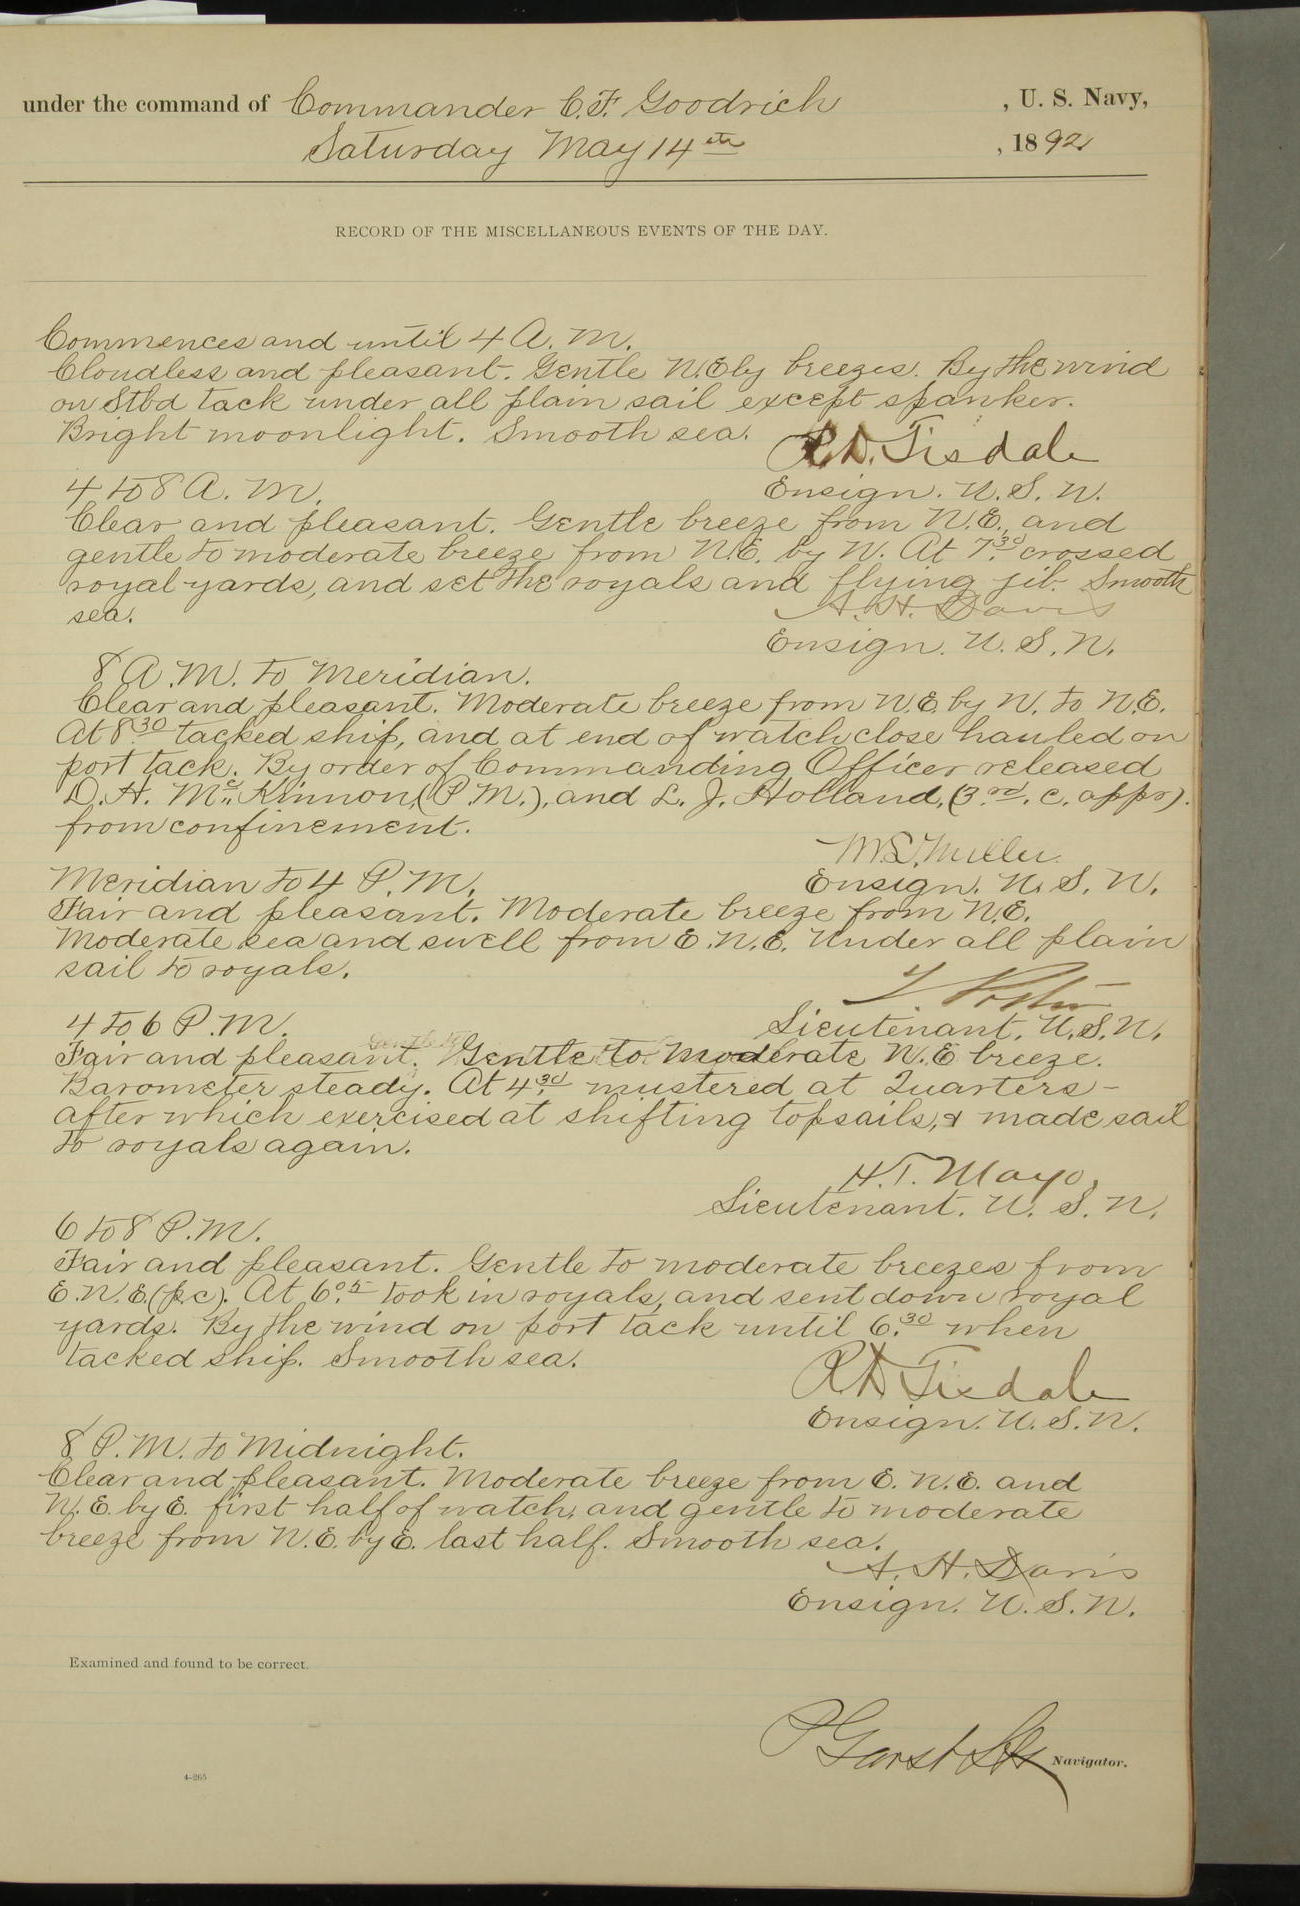 under the command of Commander C. F. Goodrich , U. S. Navy,
Saturday May 14th , 1892
RECORD OF THE MISCELLANEOUS EVENTS OF THE DAY.
Commences and until 4 A. M.
Cloudless and pleasant. Gentle N.Ely breezes. By the wind
on Stbd tack under all plain sail except spanker.
Bright moonlight. Smooth sea.
R.D. Tisdale
4 to 8 A. M.
Ensign. U. S. N.
Clear and pleasant. Gentle breeze from N.E., and
gentle to moderate breeze from N.E. by N. At 7.30 crossed
royal yards, and set the royals and flying jib. Smooth
sea.
A. H. Davis
Ensign. U. S. N.
8 A.M. to Meridian.
Clear and pleasant. Moderate breeze from N.E. by N. to N.E.
At 8.30 tacked ship, and at end of watch close hauled on
port tack. By order of Commanding Officer released
D. H. McKinnon, (P.M.), and L. J. Holland, (3rd. c. appr).
from confinement.
M.L. Miller
Meridian to 4 P. M.
Ensign. U. S. N.
Fair and pleasant. Moderate breeze from N.E.
Moderate sea and swell from E.N.E. Under all plain
sail to royals.
4 to 6 P.M.
Lieutenant. U.S.N.
Fair and pleasant. Gentle to moderate N.E breeze.
Barometer steady. At 4.30 mustered at Quarters -
after which exercised at shifting topsails, & made sail
to royals again.
H.T. Mayo,
Lieutenant. U. S. N.
6 to 8 P.M.
Fair and pleasant. Gentle to moderate breezes from
E.N.E. (p.c). At 6.05 took in royals, and sent down royal
yards. By the wind on port tack until 6.30 when
tacked ship. Smooth sea.
R.D. Tisdale
Ensign. U. S. N.
8 P. M. to Midnight.
Clear and pleasant. Moderate breeze from E. N. E. and
N. E. by E. first half of watch, and gentle to moderate
breeze from N. E. by E. last half. Smooth sea.
A. H. Davis
Ensign. U. S. N.
Examined and found to be correct.
P Garst Lt Navigator.
4-265